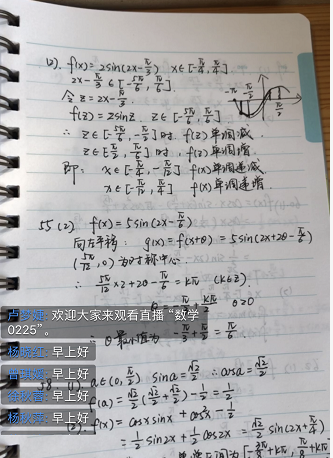 (2). f(x)=2sin(2x-π/3)  x∈[-π/4, π/4].
2x-π/3 ∈[-5π/6, π/6].
令 z=2x-π/3.
f(z)=2sinz.  z∈[-5π/6, π/6]
∴ z∈[-5π/6, -π/2]时 f(z)单调减.
z∈[-π/2, π/6]时, f(z)单调增.
即: x∈[-π/4, -π/12] f(x)单调递减
x∈[-π/12, π/4] f(x)单调递增.
-π
55 (2) f(x)=5sin(2x-π/6)
向左平移: g(x)=f(x+θ)=5sin(2x+2θ-π/6)
(5π/12, 0)为对称中心
∴ 5π/12×2+2θ-π/6=kπ (k∈Z).
kπ/2  θ>0
欢迎大家来观看直播“数学
0225”。
∴ θ最小值为 -π/3+π/2=π/6.
早上好
早上好
早上好
早上好
(1) a∈(0, π/2) sina=√2/2 ∴ cosa=√2/2
f(a)=√2/2(√2/2+√2/2)-1/2=1/2
f(x)=cosxsinx+cos²x-1/2
=1/2sin2x+1/2cos2x=√2/2sin(2x+π/4)
[-3π/8+kπ, π/8+kπ]